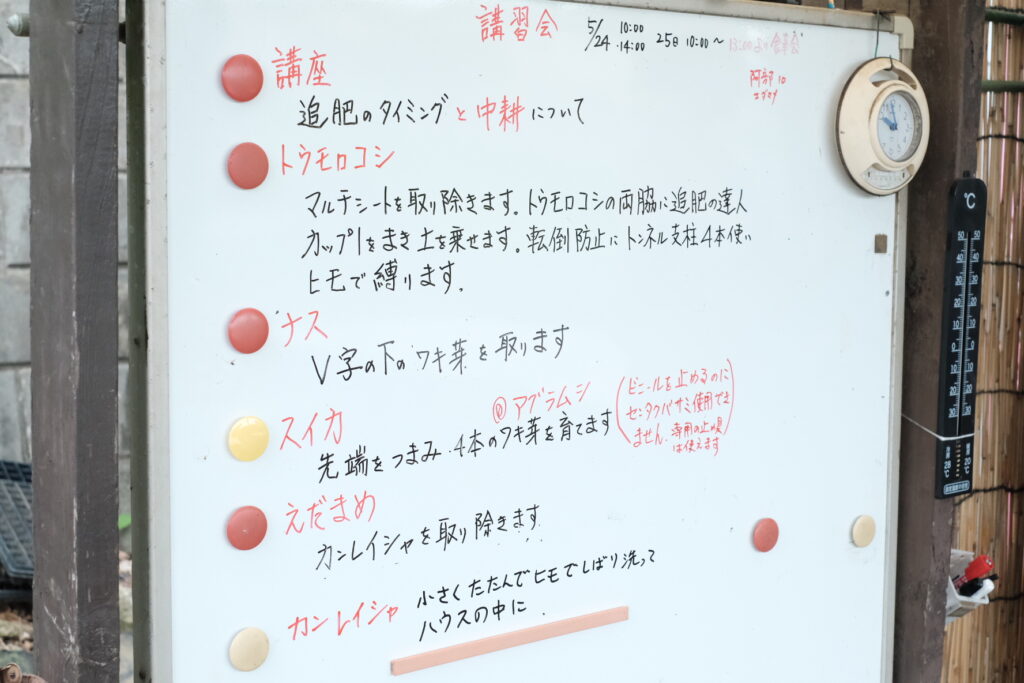 講習会 5/24 10:00 ・14:00 25日 10:00〜 13:00より食事会
阿部 10
講座
追肥のタイミングと中耕について
トウモロコシ
マルチシートを取り除きます。トウモロコシの両脇に追肥の達人
カップ1をまき土を乗せます。転倒防止にトンネル支柱4本使い
ヒモで縛ります。
ナス
V字の下のワキ芽を取ります
スイカ
@アブラムシ
先端をつまみ、4本のワキ芽を育てます
(ビニールを止めるのに
センタクバサミ使用でき
ません。専用の止め具
は使えます)
えだまめ
カンレイシャを取り除きます
カンレイシャ 小さくたたんでヒモでしばり洗って
ハウスの中に.
℃
50 50
40 40
30 30
20 20
10 10
0 0
10 10
20 20
30 30
28℃ 20℃